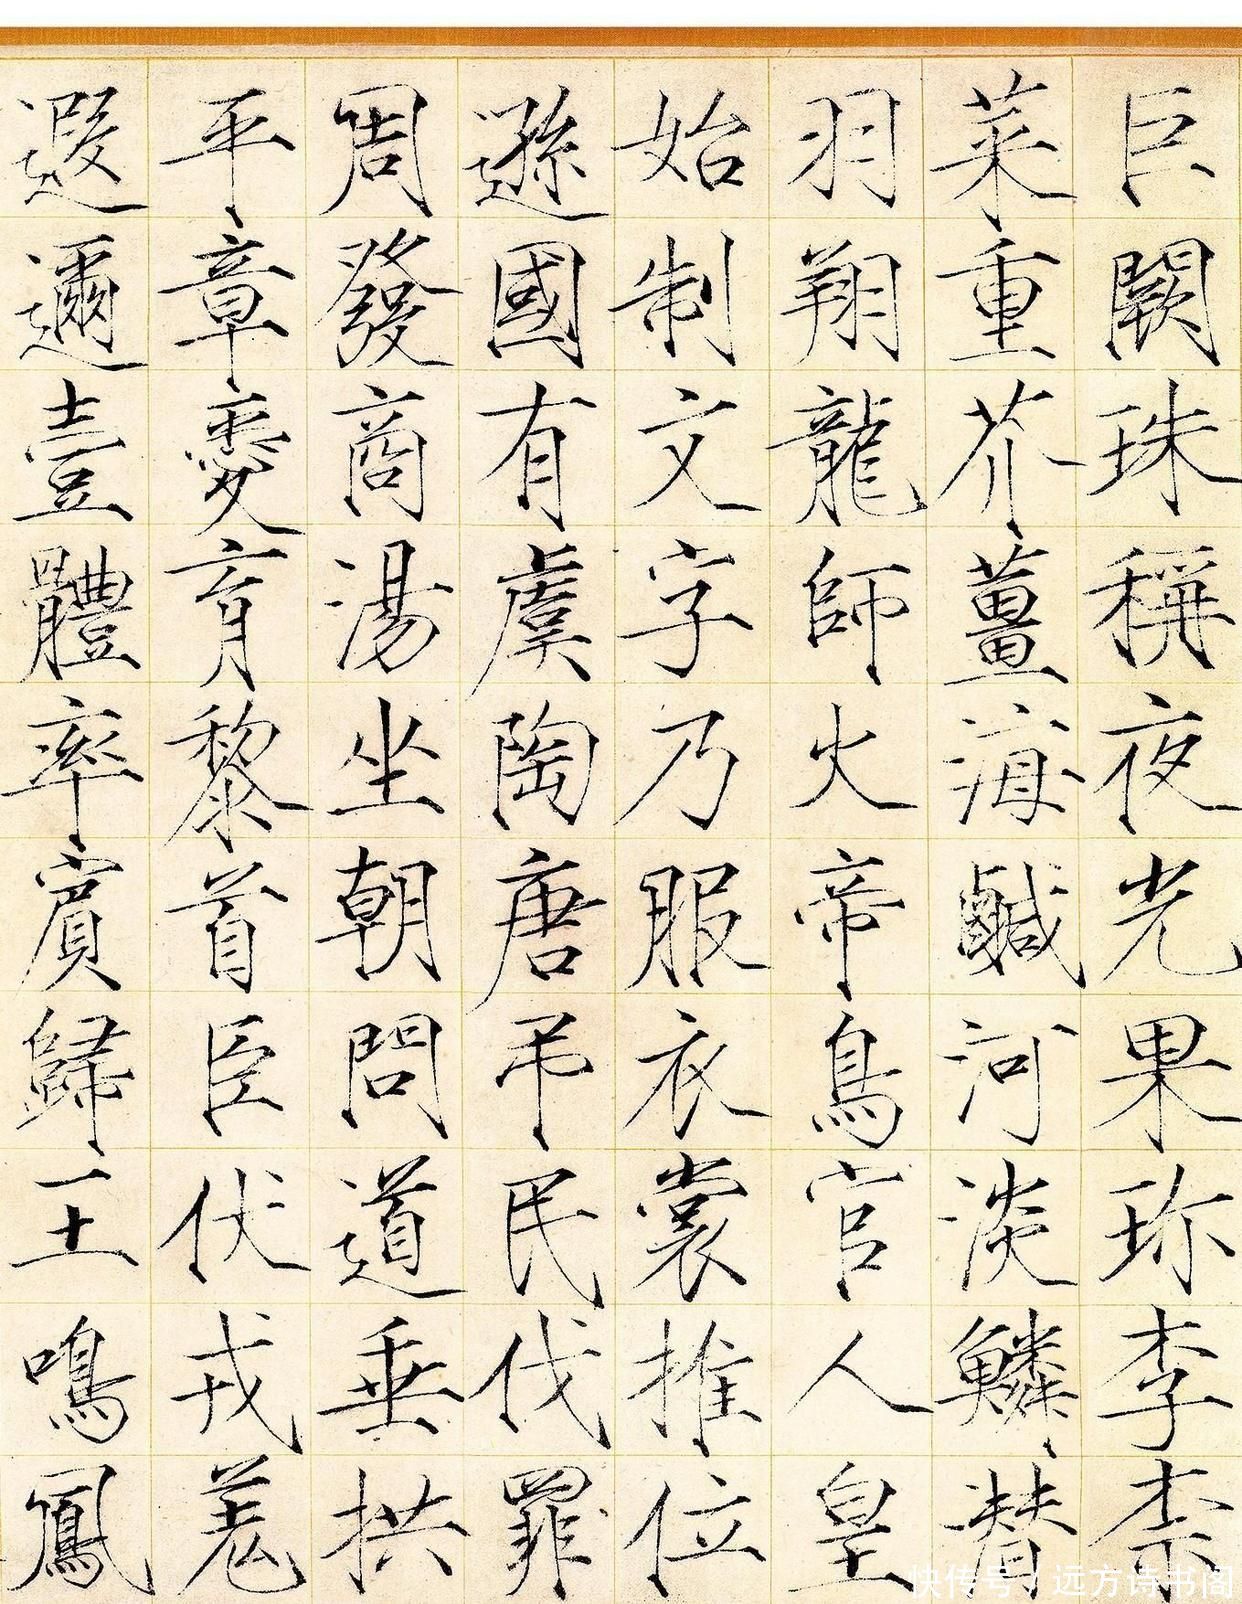 巨闕珠稱夜光果珎李柰
菜重芥薑海鹹河淡鱗潛
羽翔龍師火帝鳥官人皇
始制文字乃服衣裳推位
遜國有虞陶唐弔民伐罪
周發商湯坐朝問道垂拱
平章愛育黎首臣伏戎羌
遐邇壹體率賓歸王鳴鳳
快传号 / 远方诗书阁